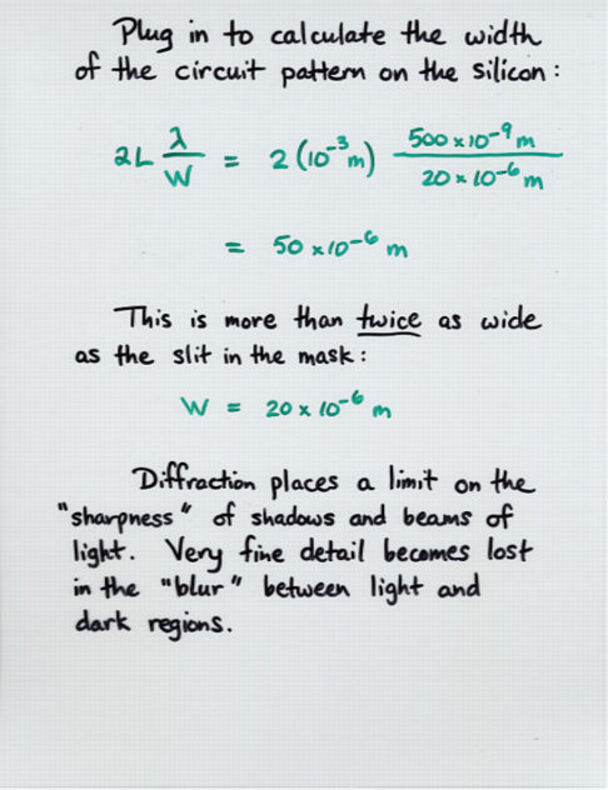 Plug in to calculate the width
of the circuit pattern on the silicon:
2L λ/W = 2 (10⁻³ m) 500 x 10⁻⁹ m / 20 x 10⁻⁶ m
= 50 x 10⁻⁶ m
This is more than twice as wide
as the slit in the mask:
W = 20 x 10⁻⁶ m
Diffraction places a limit on the
"sharpness" of shadows and beams of
light. Very fine detail becomes lost
in the "blur" between light and
dark regions.